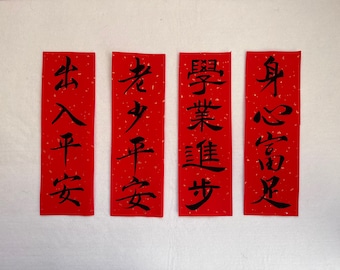 出入平安
老少平安
學業進步
身心富足